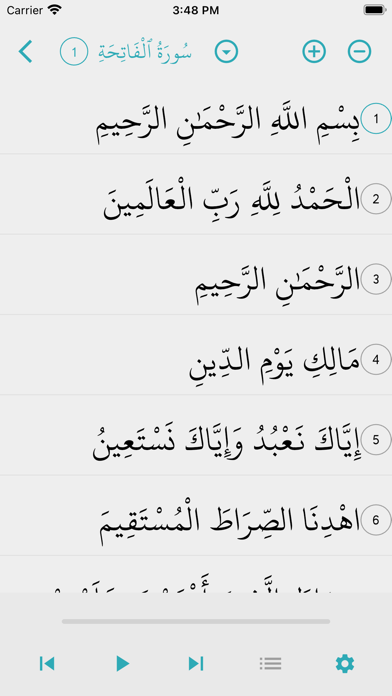 Carrier 3:48 PM
1 سُورَةُ ٱلْفَاتِحَةِ
1 بِسْمِ اللَّهِ الرَّحْمَـٰنِ الرَّحِيمِ
2 الْحَمْدُ لِلَّهِ رَبِّ الْعَالَمِينَ
3 الرَّحْمَـٰنِ الرَّحِيمِ
4 مَالِكِ يَوْمِ الدِّينِ
5 إِيَّاكَ نَعْبُدُ وَإِيَّاكَ نَسْتَعِينُ
6 اهْدِنَا الصِّرَاطَ الْمُسْتَقِيمَ